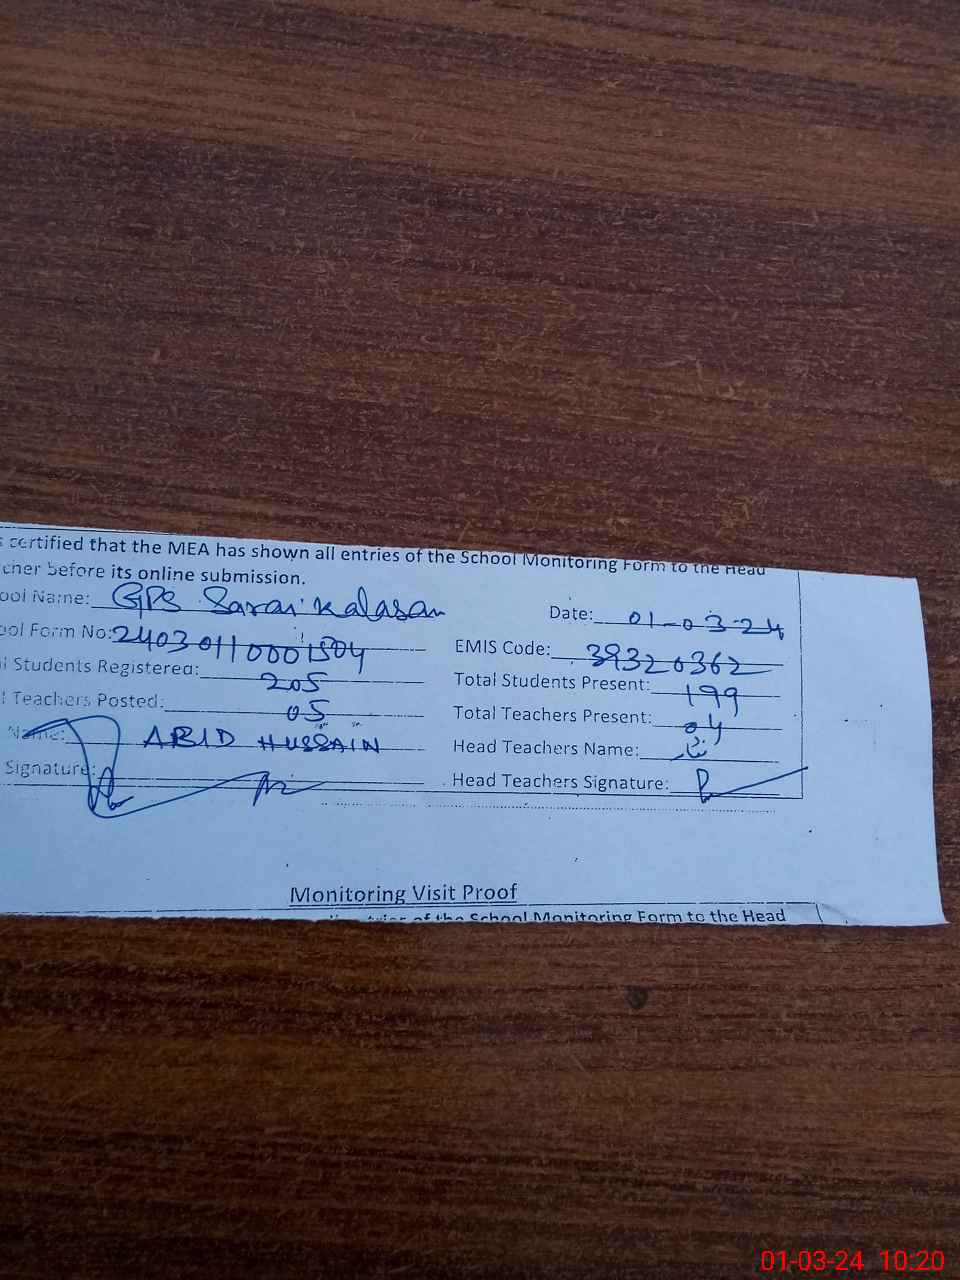 certified that the MEA has shown all entries of the School Monitoring Form to the Head
cher before its online submission.
ool Name: GPS Sarai Kalasan Date: 01-03-24
ool Form No: 24030110001504 EMIS Code: 39320362
l Students Registered: 205 Total Students Present: 199
l Teachers Posted: 05 Total Teachers Present: 04
Name: ABID HUSSAIN Head Teachers Name: نثار
Signature: Head Teachers Signature:
Monitoring Visit Proof
of the School Monitoring Form to the Head
01-03-24 10:20